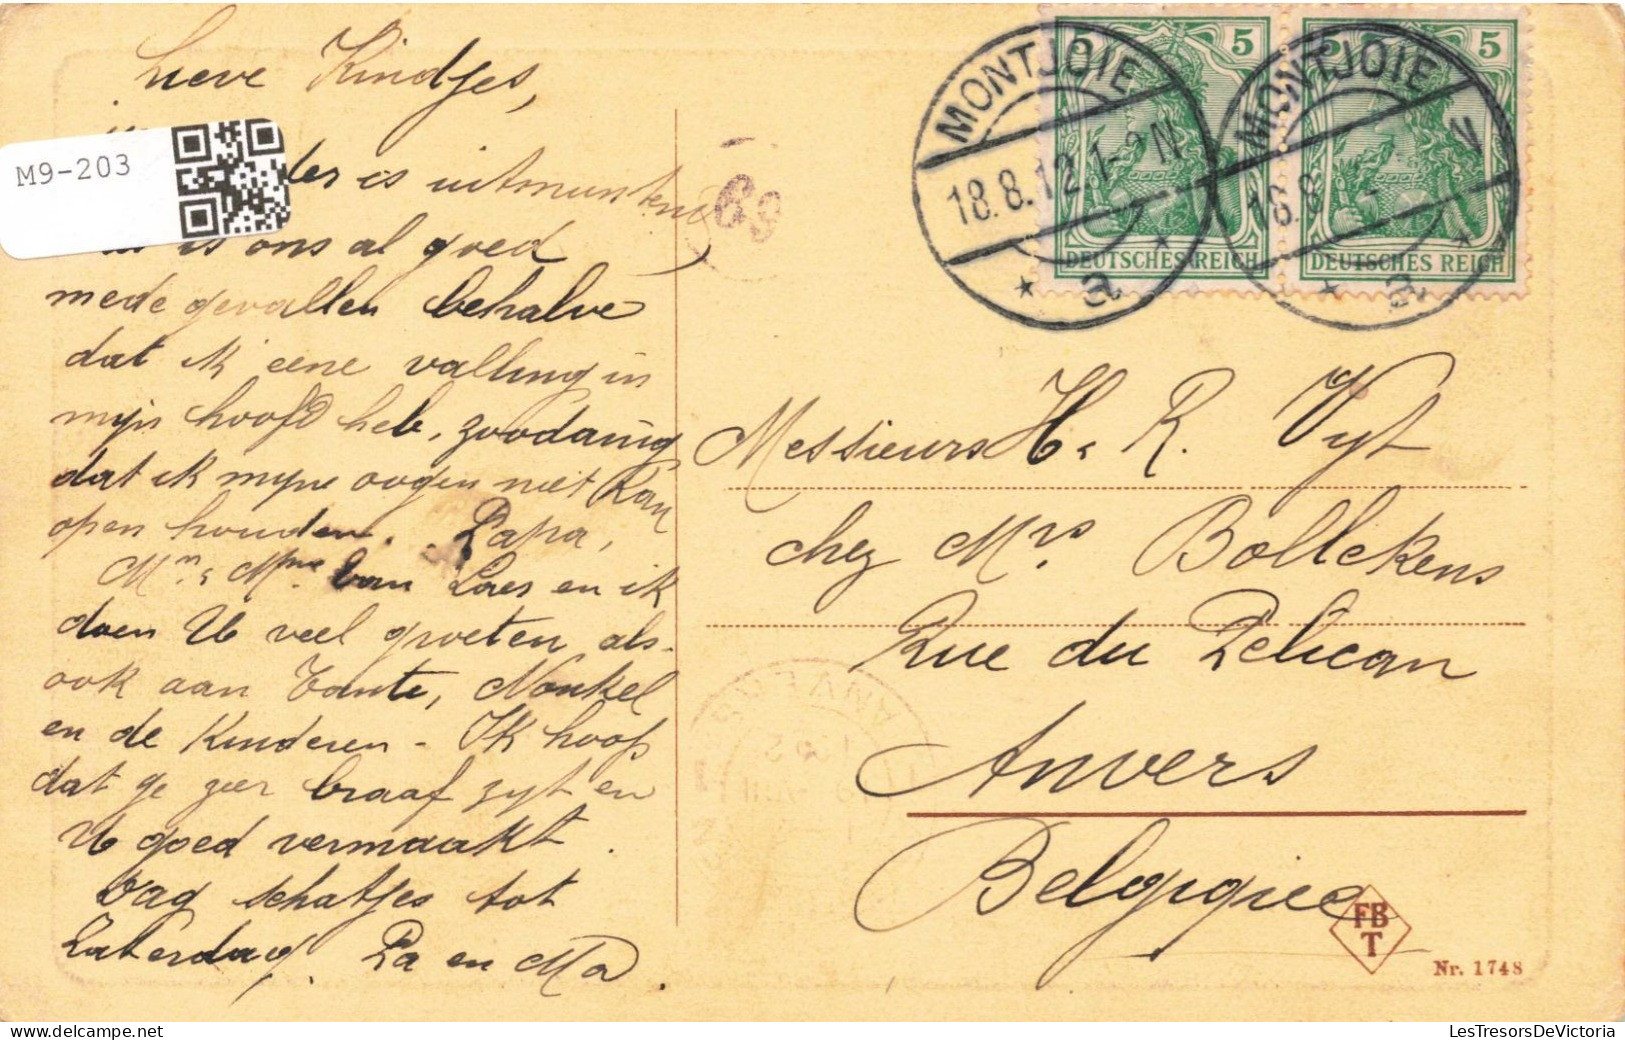 lieve Kindjes,
M9-203
is uitmuntend
is ons al goed
mede gevallen behalve
dat ik eene valling in
mijn hoofd heb, zoodanig
dat ik mijne oogen niet kan
open houden. Papa,
Mr. & Mme. van Laes en ik
doen U veel groeten als-
ook aan Tante, Nonkel
en de Kinderen - Ik hoop
dat ge zeer braaf zyt en
U goed vermaakt.
Dag schatjes tot
Zaterdag. Pa en Ma.
69
MONTJOIE
18.8.12.1-2N
a
5
5
DEUTSCHES REICH
MONTJOIE
18.8
a
5
5
DEUTSCHES REICH
Messieurs H & R. Vyt
chez Mrs Bollekens
Rue du Pelican
Anvers
Belgique
FB
T
Nr. 1748
LesTresorsDeVictoria